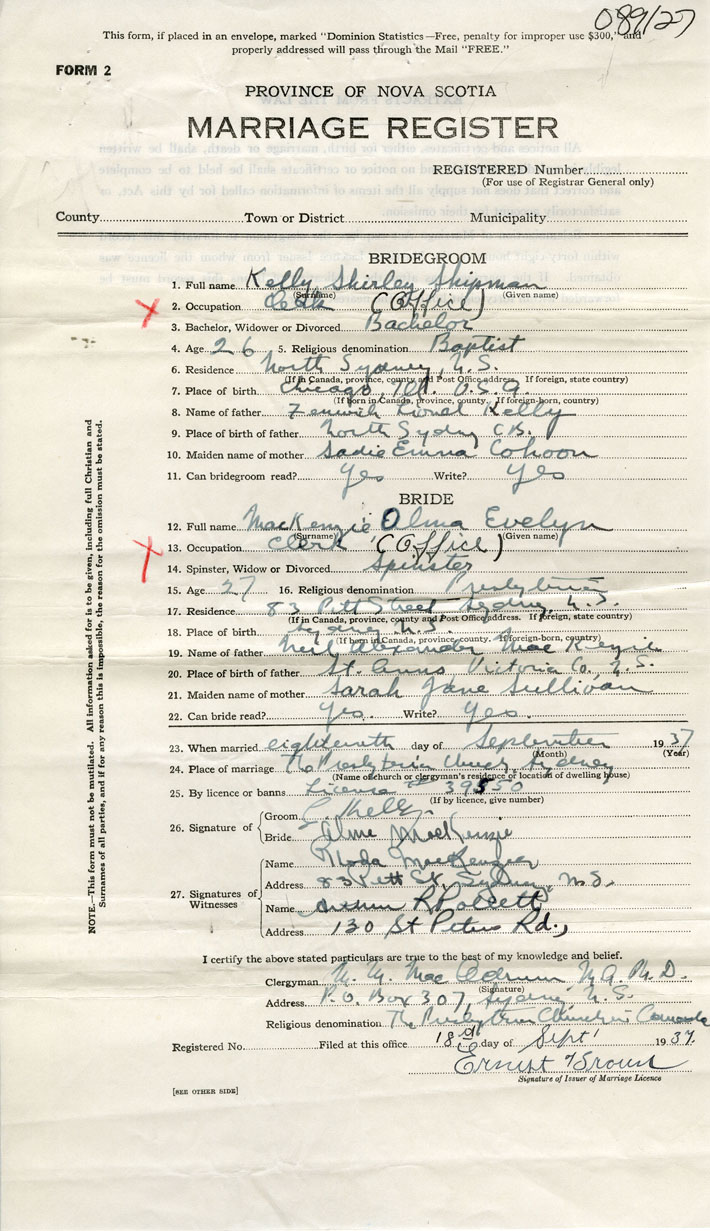 089127
This form, if placed in an envelope, marked "Dominion Statistics—Free, penalty for improper use $300," and
properly addressed will pass through the Mail "FREE."
FORM 2
PROVINCE OF NOVA SCOTIA
MARRIAGE REGISTER
REGISTERED Number
(For use of Registrar General only)
County Town or District Municipality
BRIDEGROOM
1. Full name Kelly Shirley Shipman
(Surname) (Given name)
2. Occupation Clerk (Office)
3. Bachelor, Widower or Divorced Bachelor
4. Age 26 5. Religious denomination Baptist
6. Residence North Sydney, N.S.
(If in Canada, province, county and Post Office address. If foreign, state country)
7. Place of birth Chicago, Ill. U.S.A.
(If born in Canada, province, county. If foreign-born, country)
8. Name of father Fenwick Lionel Kelly
9. Place of birth of father North Sydney C.B.
10. Maiden name of mother Sadie Emma Cohoon
11. Can bridegroom read? Yes Write? Yes
BRIDE
12. Full name MacKenzie Olma Evelyn
(Surname) (Given name)
13. Occupation Clerk (Office)
14. Spinster, Widow or Divorced Spinster
15. Age 27 16. Religious denomination Presbyterian
17. Residence 83 Pitt Street Sydney, N.S.
(If in Canada, province, county and Post Office address. If foreign, state country)
18. Place of birth Sydney N.S.
(If born in Canada, province, county. If foreign-born, country)
19. Name of father Neil Alexander MacKenzie
20. Place of birth of father St. Anns Victoria Co., N.S.
21. Maiden name of mother Sarah Jane Sullivan
22. Can bride read? Yes. Write? Yes.
23. When married eighteenth day of September 1937
(Month) (Year)
24. Place of marriage The Presbyterian Church, Sydney
(Name of church or clergyman's residence or location of dwelling house)
25. By licence or banns License # 39550
(If by licence, give number)
26. Signature of
Groom Kelly
Bride MacKenzie
27. Signatures of Witnesses
Name MacKenzie
Address 83 Pitt St. Sydney, N.S.
Name Arthur R
Address 130 St Peters Rd.,
I certify the above stated particulars are true to the best of my knowledge and belief.
Clergyman Mac Odrum M.A. Ph.D.
(Signature)
Address P.O. Box 307, Sydney, N.S.
Religious denomination The Presbyterian Church in Canada
Registered No. Filed at this office 18 day of Sept 1937.
Ernest Brown
Signature of Issuer of Marriage Licence
[SEE OTHER SIDE]
NOTE.—This form must not be mutilated. All information asked for is to be given, including full Christian and
Surnames of all parties, and if for any reason this is impossible, the reason for the omission must be stated.